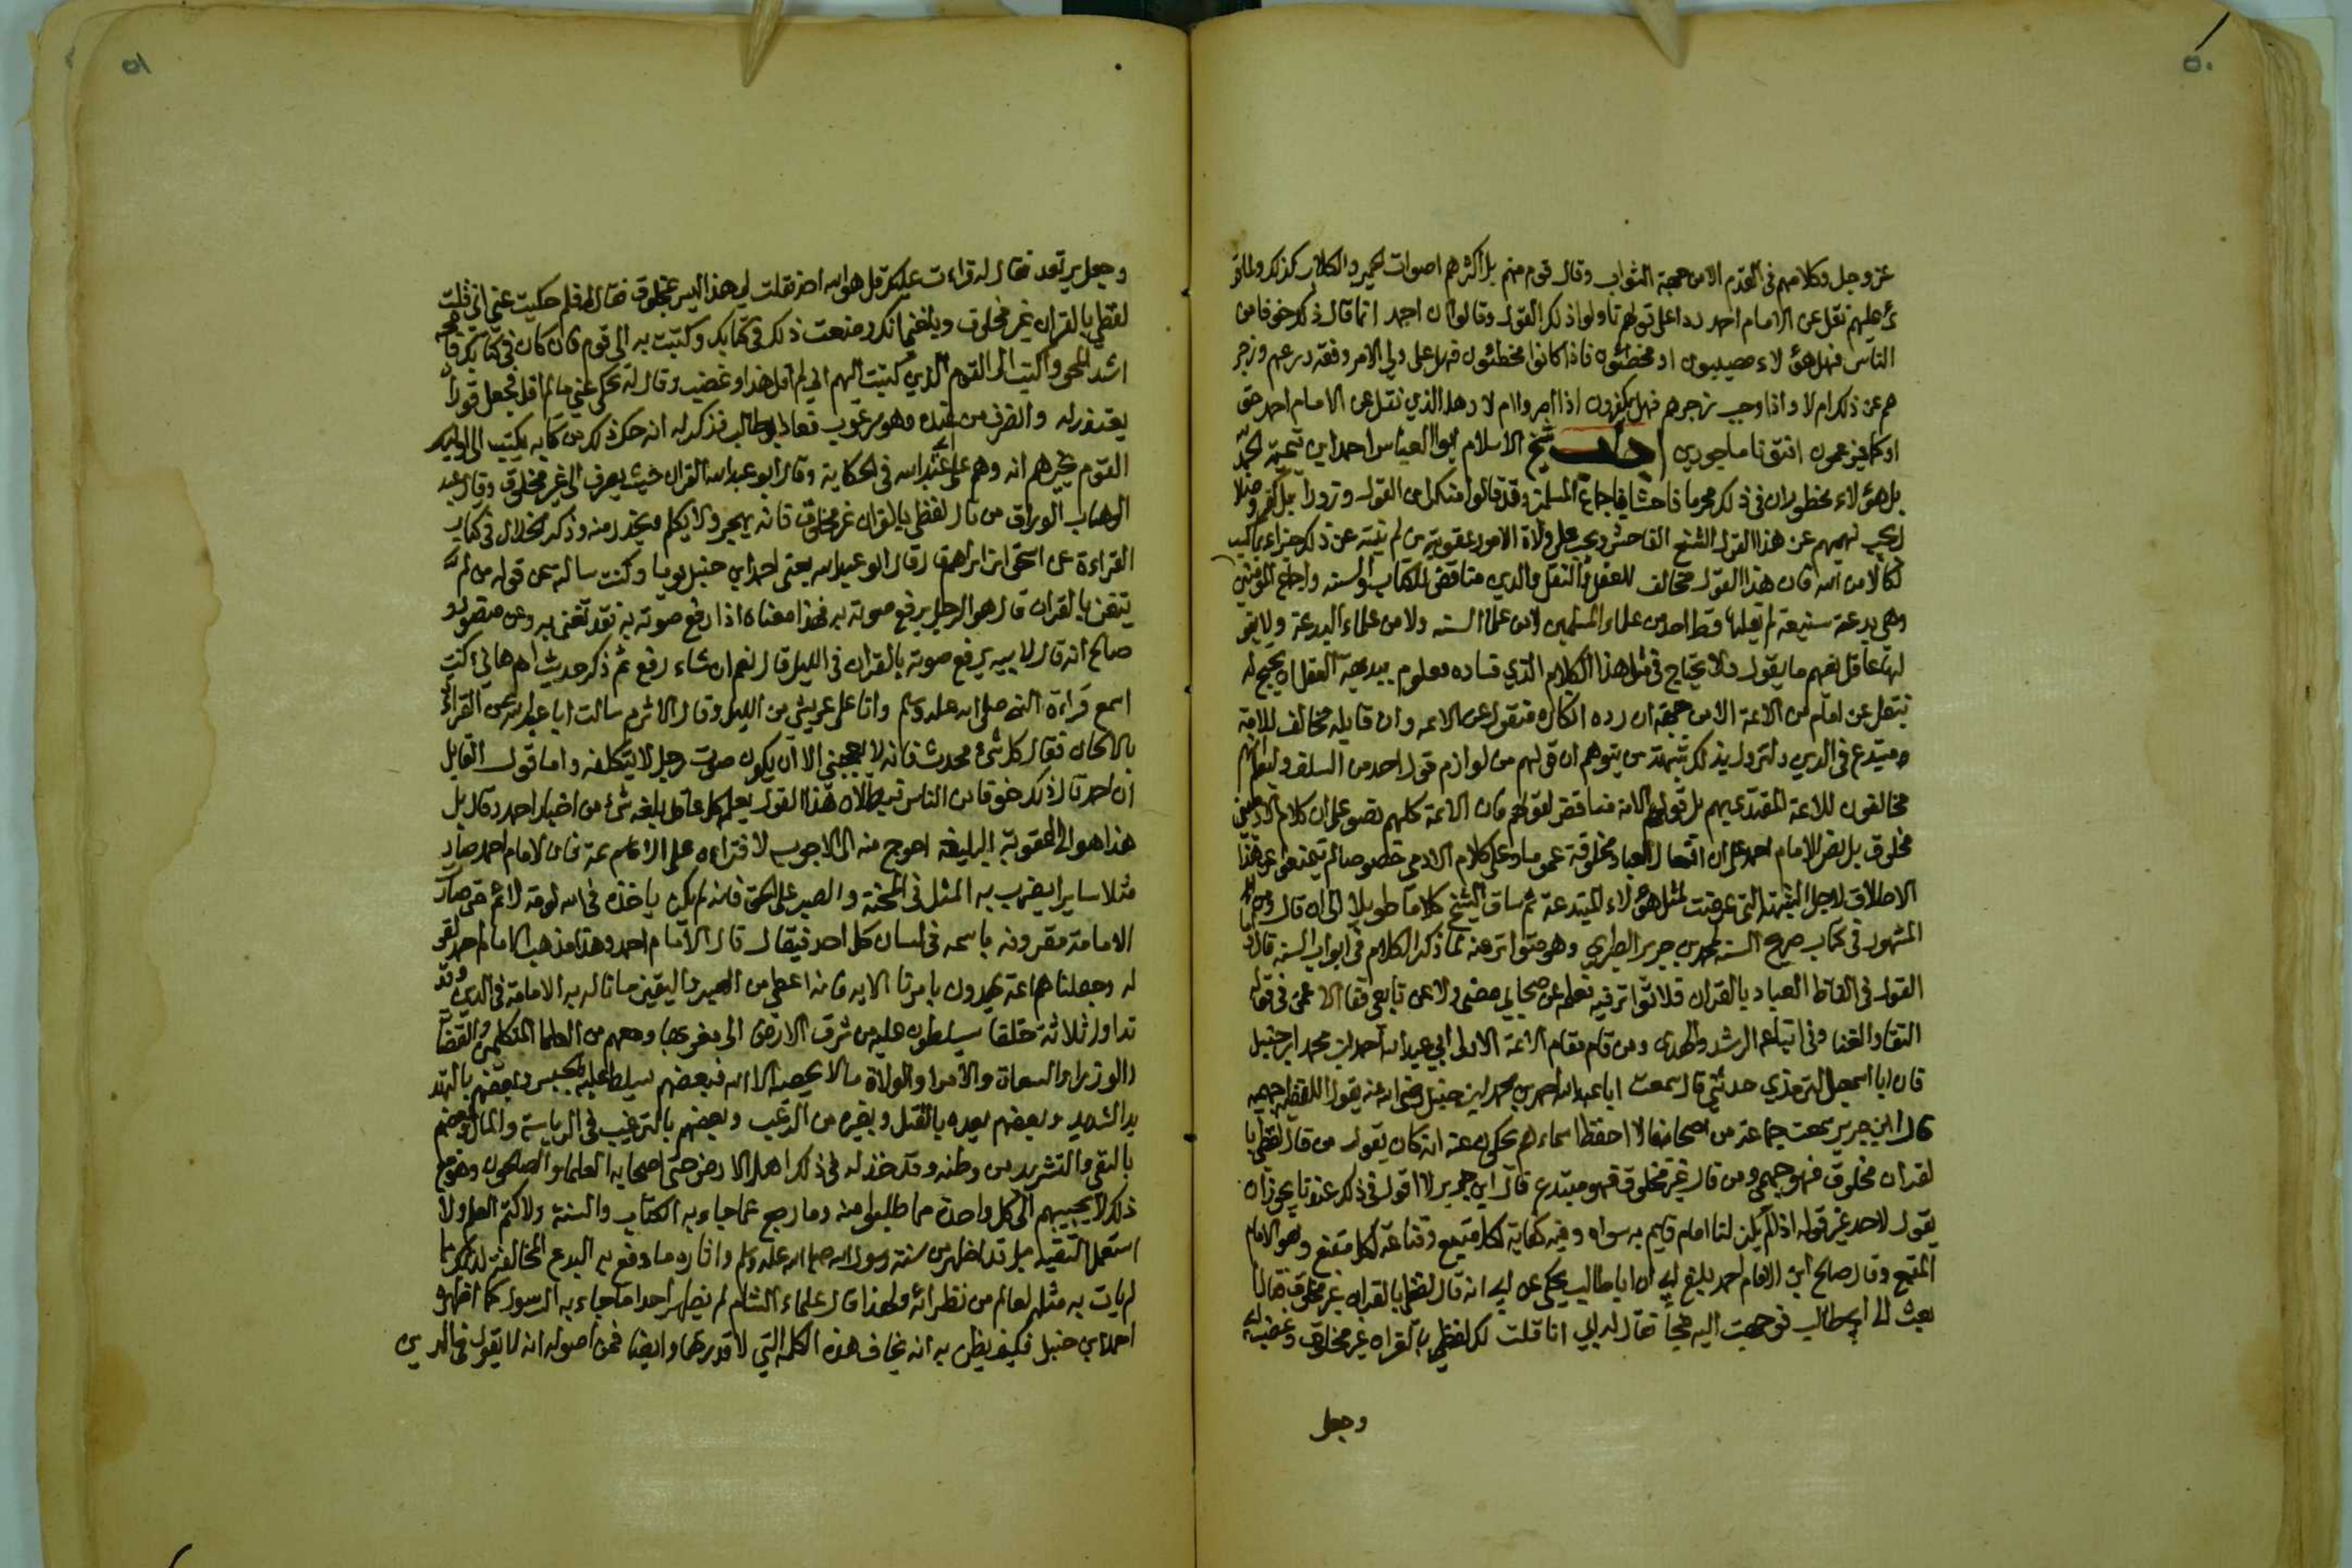 ٥٠
عز وجل وكلامهم في القدم الا من جهة الثواب وقال قوم منهم بل اكثرهم اصوات الحمير والكلاب كذلك ولما قر
ئ عليهم نقل عن الامام احمد ردا على قولهم تاولوا ذلك القول وقالوا ان احمد انما قال ذلك خوفا من
الناس فهل هؤلاء مصيبون او مخطئون فاذا كانوا مخطئون فهل على ولي الامر وفقه ردعهم وزجر
هم عن ذلك ام لا واذا وجب زجرهم فهل يكفرون اذا اصروا ام لا وهل الذي نقل عن الامام احمد حق
او كما يزعمون افتونا ماجورين اجاب شيخ الاسلام ابو العباس احمد ابن تيمية الحمد لله
بل هؤلاء مخطئون في ذلك محرما فاحشا باجماع المسلمين وقد قالوا منكرا من القول وزورا بل كفر وضلا
ل يجب نهيهم عن هذا القول الشنيع الفاحش ويجب على ولاة الامور عقوبة من لم ينته عن ذلك جزاء بما كسب
نكالا من الله فان هذا القول مخالف للعقل والنقل والدين مناقض للكتاب والسنه واجماع المؤمنين
وهي بدعة شنيعة لم يقلها قط احد من علماء المسلمين لا من علماء السنه ولا من علماء البدعة ولا يقو
لها عاقل يفهم ما يقول ولا يحتاج في مثل هذا الكلام الذي فساده معلوم ببديهة العقل ان يحتج له
بنقل عن امام من الائمة الا من جهة ان رده انكاره منقول عن الائمه وان قايله مخالف للامة
ومبتدع في الدين ولتزول بذلك شبهة من يتوهم ان قولهم من لوازم قول احد من السلف وليعلم انهم
مخالفون للائمة المقتدى بهم بل قول الائمة مناقض لقولهم فان الائمة كلهم نصو على ان كلام الادميين
مخلوق بل نص الامام احمد على ان افعال العباد مخلوقة عموما وعلى كلام الادمي خصوصا لم يمتنعوا عن هذا
الاطلاق لاجل الشبهة التي عرضت لمثل هؤلاء المبتدعة ثم ساق الشيخ كلاما طويلا الى ان قال ومن
المشهور في كتاب صريح السنه لمحمد بن جرير الطبري وهو متواتر عنه لما ذكر الكلام في ابواب السنة قال
القول في الفاظ العباد بالقران فلا تواتر فيه نعلم عن صحابي مضى ولا عن تابعي قفا الا عمن في قوله
الشفا والغنا وفي اتباعه الرشد والهدى ومن قام مقام الائمة الاولى ابي عبد الله احمد بن محمد ابن حنبل
فان ابا اسمعيل الترمذي حدثني قال سمعت ابا عبد الله احمد بن محمد ابن حنبل رضي الله عنه يقول اللفظية جهميه
قال ابن جرير سمعت جماعة من اصحابنا لا احفظ اسماءهم يحكون عنه انه كان يقول من قال لفظي با
لقران مخلوق فهو جهمي ومن قال غير مخلوق فهو مبتدع قال ابن جرير لا اقول في ذلك عندنا يجوز ان
يقول لاحد غير قوله اذ لم يكن لنا امام قايم به سواه وفيه كفاية لكل متبع وقناعة لكل مقنع وهو الامام
المتبع وقال صالح ابن الامام احمد بلغ ابي ان ابا طالب يحكي عن ابي انه قال لفظي بالقران غير مخلوق فقال
بعث الى ابي طالب فوجهت اليه فجأ فقال له ابي انا قلت لك لفظي بالقران غير مخلوق وغضب ابي
وجعل
٥١
وجعل يرتعد فقال له قراءت عليك قل هو الله احد فقلت لي هذا ليس بمخلوق فقال له فلم حكيت عني اني قلت
لفظي بالقران غير مخلوق وبلغني انك وضعت ذلك في كتابك وكتبت به الى قوم فان كان في كتابك فامحه
اشد المحو واكتب الى القوم الذين كتبت اليهم اني لم اقل هذا وغضب وقال له تحكي عني ما لم اقل فجعل فوران
يعتذر له وانصرف من عنده وهو مرعوب فعاد ابو طالب فذكر له انه حك ذلك من كتابه وكتب الى اولئك
القوم يخبرهم انه وهم على ابي عبد الله في الحكاية وقال ابو عبد الله القران حيث يصرف الى غير مخلوق وقال عبد
الوهاب الوراق من قال لفظي بالقران غير مخلوق فانه يهجر ولا يكلم ويحذر منه وذكر الخلال في كتاب
القراءة عن اسحق ابن ابراهيم قال قال ابو عبد الله يعني احمد ابن حنبل يوما وكنت سالته عن قوله من لم
يتغن بالقران قال هو الرجل يرفع صوته به فهذا معناه اذا رفع صوته به فقد تغنى به وعن منصور و
صالح انه قال لابيه يرفع صوته بالقران في الليل قال نعم ان شاء رفع ثم ذكر حديث ام هاني كنت
اسمع قراءة النبي صلى الله عليه وسلم وانا على عريشي من الليل وقال الاثرم سالت ابا عبد الله عن القراءة
بالالحان فقال كل شيء محدث فانه لا يعجبني الا ان يكون صوت رجل لا يتكلفه واما قول القايل
ان احمد قال ذلك خوفا من الناس فبطلان هذا القول يعلمه كل عاقل بلغه شئ من اخبار احمد وقايل
هذا هو الى العقوبة البليغة احوج منه الى الاجوبه لافترائه على الائمة فان الامام احمد صار
مثلا سايرا يضرب به المثل في المحنة والصبر على الحق فانه لم يكن ياخذه في الله لومة لائم حتى صارت
الامامة مقرونه باسمه في لسان كل احد فيقال قال الامام احمد وهذا مذهب الامام احمد لقو
له وجعلنا هم ائمة يهدون بامرنا الايه فانه اعطي من الصبر واليقين ما نال به الامامة في الدين وقد
تداول ثلاثة خلفا يسلطون عليه من شرق الارض الى مغربها ومعهم من العلما المتكلمين والقضا
والوزرا والسعاة والامرا والولاة ما لا يحصيه الا الله فبعضهم تسلط عليه بالحبس وبعضهم بالتهد
يد الشديد وبعضهم يعده بالقتل وبغيره من الرعب وبعضهم بالترغيب في الرياسة والمال وبعضهم
بالنفي والتشريد من وطنه وقد خذله في ذلك اهل الارض حتى اصحابه العلماء والصالحون وهو مع
ذلك لا يجيبهم الى كلمة واحدة مما طلبوا منه وما رجع عما جاء به الكتاب والسنة ولا كتم العلم ولا
استعمل التقيه بل قد اظهر من سنة رسول الله صلى الله عليه وسلم واثاره ما دفع به البدع المخالفة لذلك ما
لم يات به مثله لعالم من نظرائه ولهذا قال علماء الشام لم يظهر احد ما جاء به الرسول كما اظهره
احمد بن حنبل فكيف يظن به انه يخاف هذه الكلمه التي لا قدر لها وايضا فمن اصوله انه لا يقول في الدين